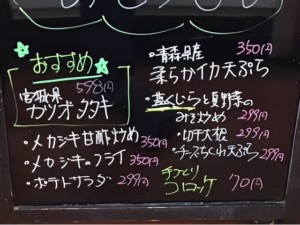 おすすめ
宮城県 598円
カツオタタキ
・メカジキ甘酢炒め 350円
・メカジキのフライ 350円
・ポテトサラダ 299円
・青森県産 350円
柔らかイカ天ぷら
くじらと夏野菜の
みそ炒め 299円
・切干大根 299円
・チーズちくわ天ぷら 299円
手づくり
コロッケ 70円